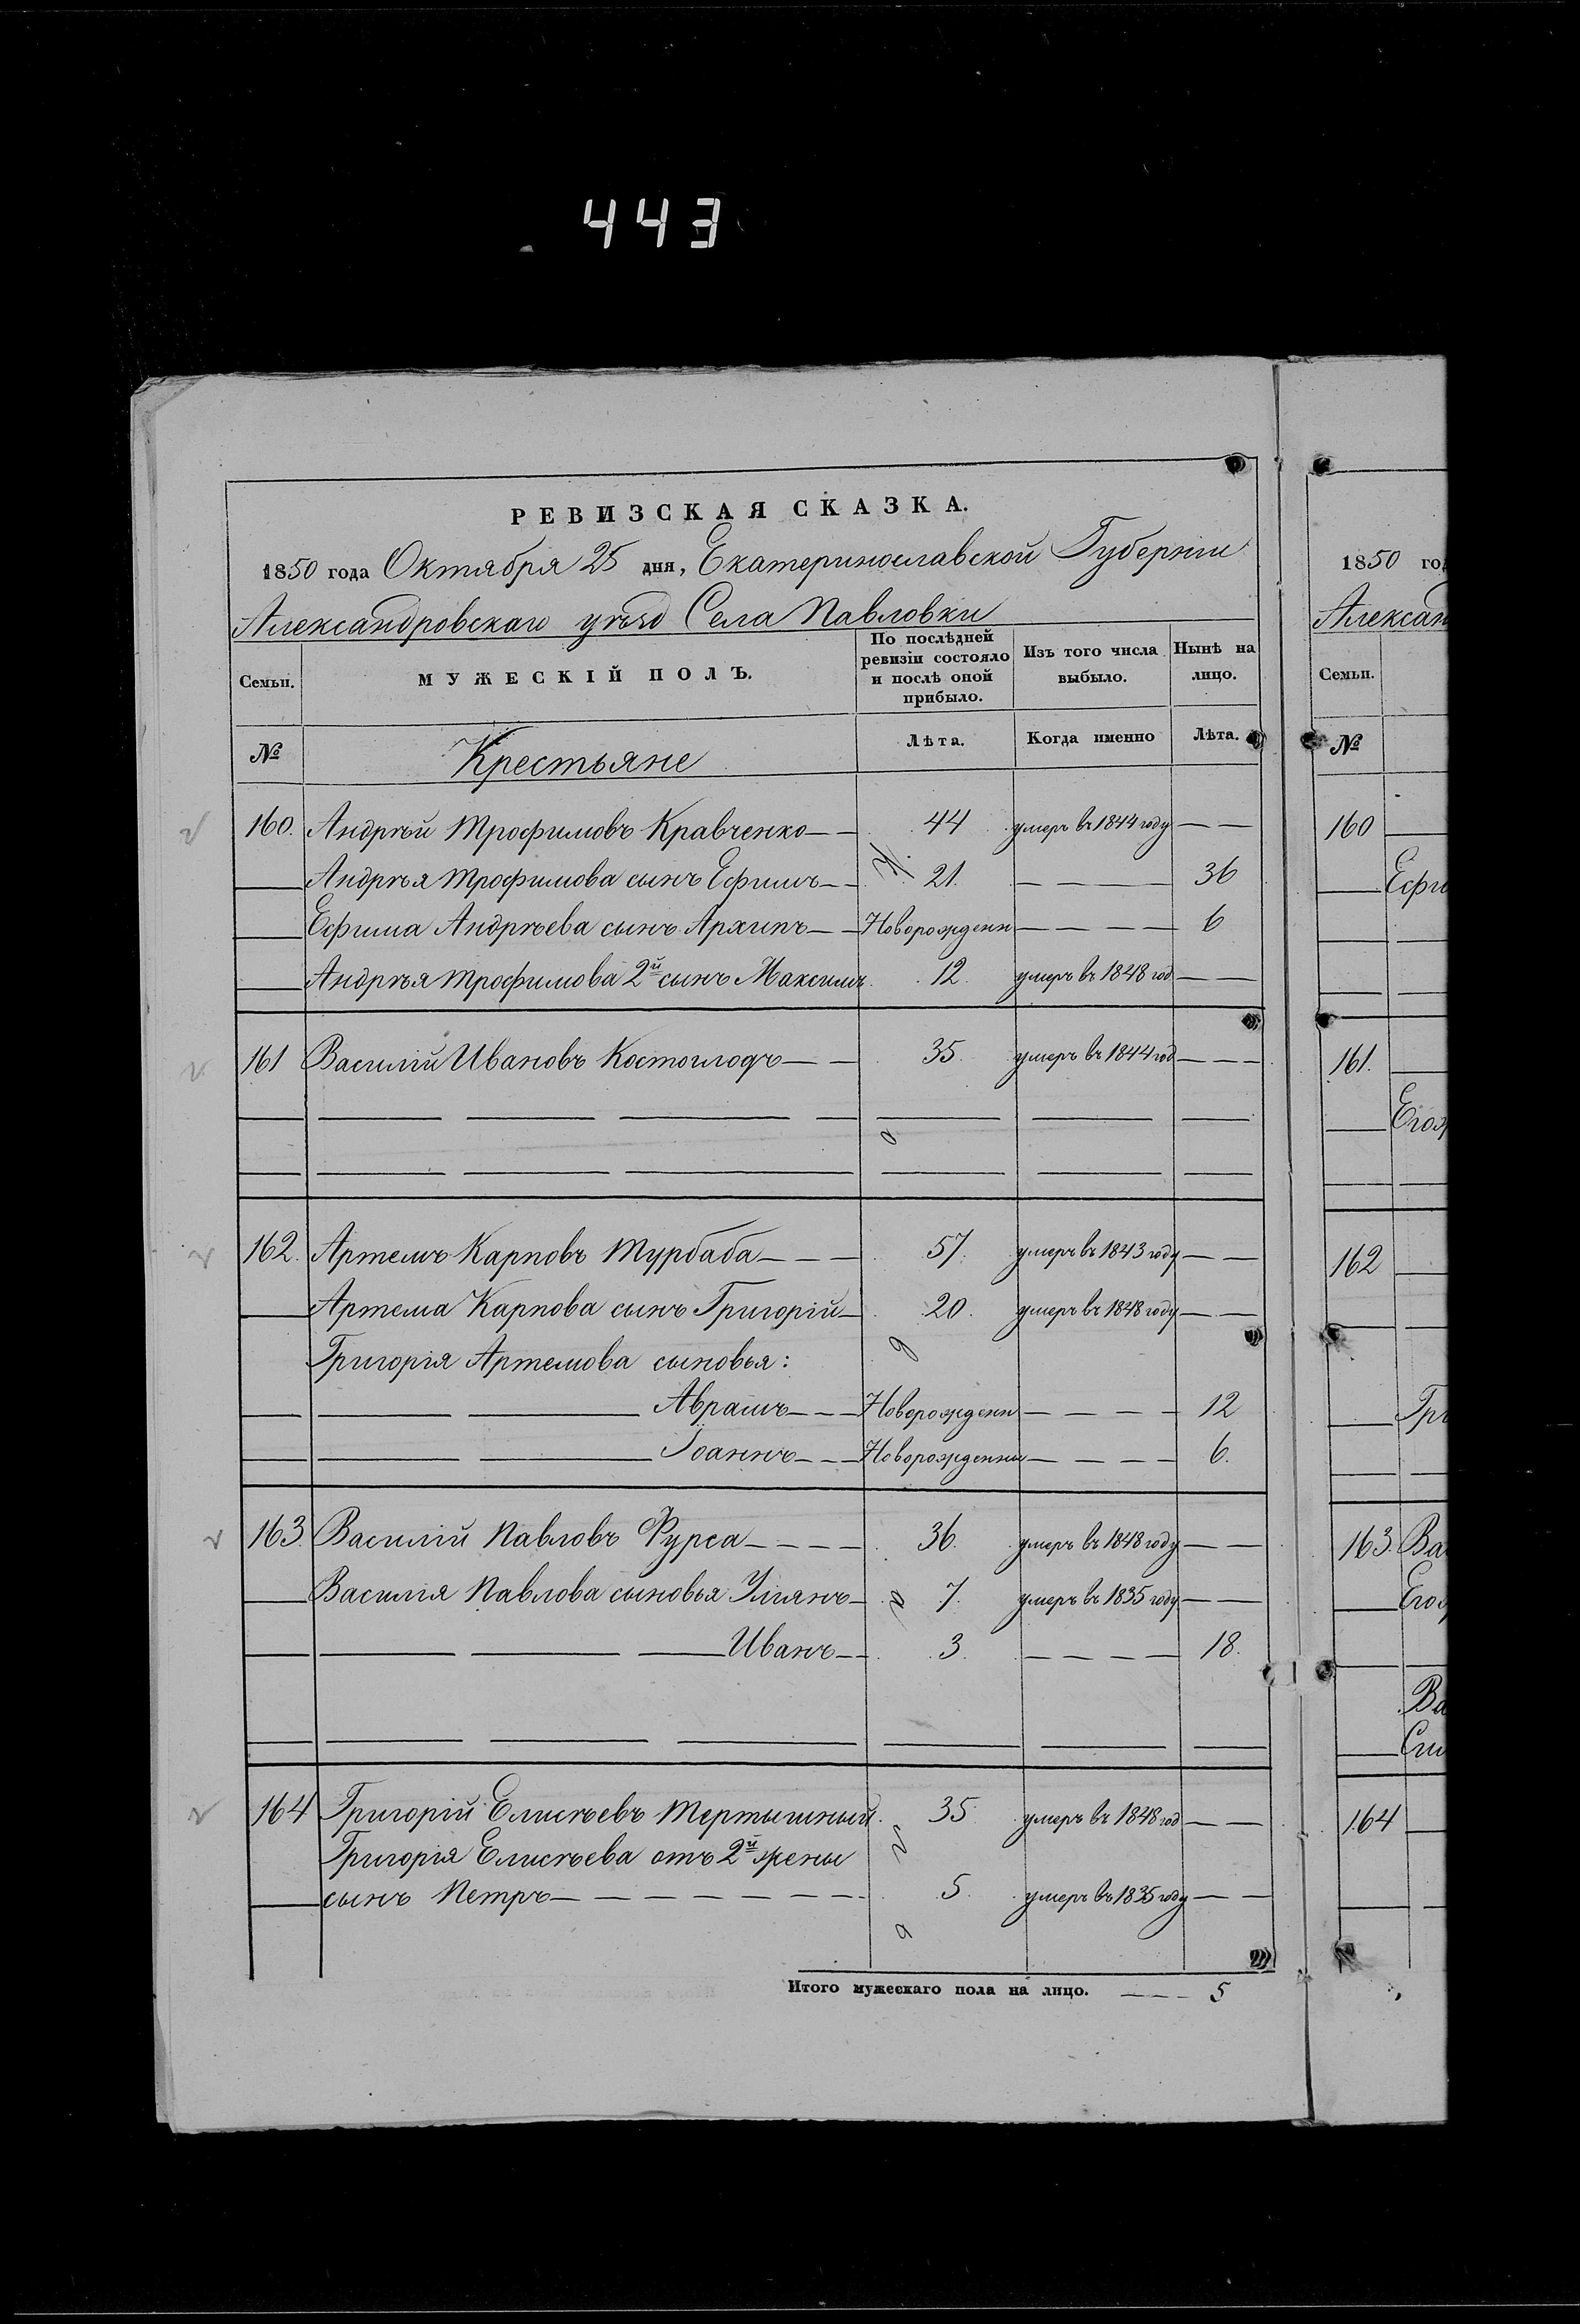 443
РЕВИЗСКАЯ СКАЗКА.
1850 года Октября 25 дня, Екатеринославской Губерніи
Александровскаго уѣзд Села Павловки
Семьи. МУЖЕСКІЙ ПОЛЪ. По послѣдней ревизіи состояло и послѣ оной прибыло. Изъ того числа выбыло. Нынѣ на лицо.
№ Крестьяне Лѣта. Когда именно Лѣта.
160. Андрѣй Трофимовъ Кравченко 44 умеръ въ 1844 году
Андрѣя Трофимова сынъ Ефимъ 21. 36
Ефима Андрѣева сынъ Архипъ Новорожденн 6
Андрѣя Трофимова 2й сынъ Максимъ 12. умеръ въ 1848 год
161 Василій Ивановъ 35. умеръ въ 1844 год
162. Артемъ Карповъ Турбаба 57. умеръ въ 1843 году
Артема Карпова сынъ Григорій 20. умеръ въ 1848 году
Григорія Артемова сыновья:
Аврамъ Новорожденн 12
Іоаннъ Новорожденны 6.
163. Василій Павловъ Фурса 36. умеръ въ 1848 году
Василія Павлова сыновья Улianъ 7. умеръ въ 1835 году
Иванъ 3. 18.
164 Григорій Елисѣевъ Мертышный 35 умеръ въ 1848 год
Григорія Елисѣева отъ 2й жены
сынъ Петръ 5. умеръ въ 1835 году
Итого мужескаго пола на лицо. 5
1850 го
Алексан
Семьи.
№
160
Ефи
161.
162
Гри
163. Ва
Ва
164